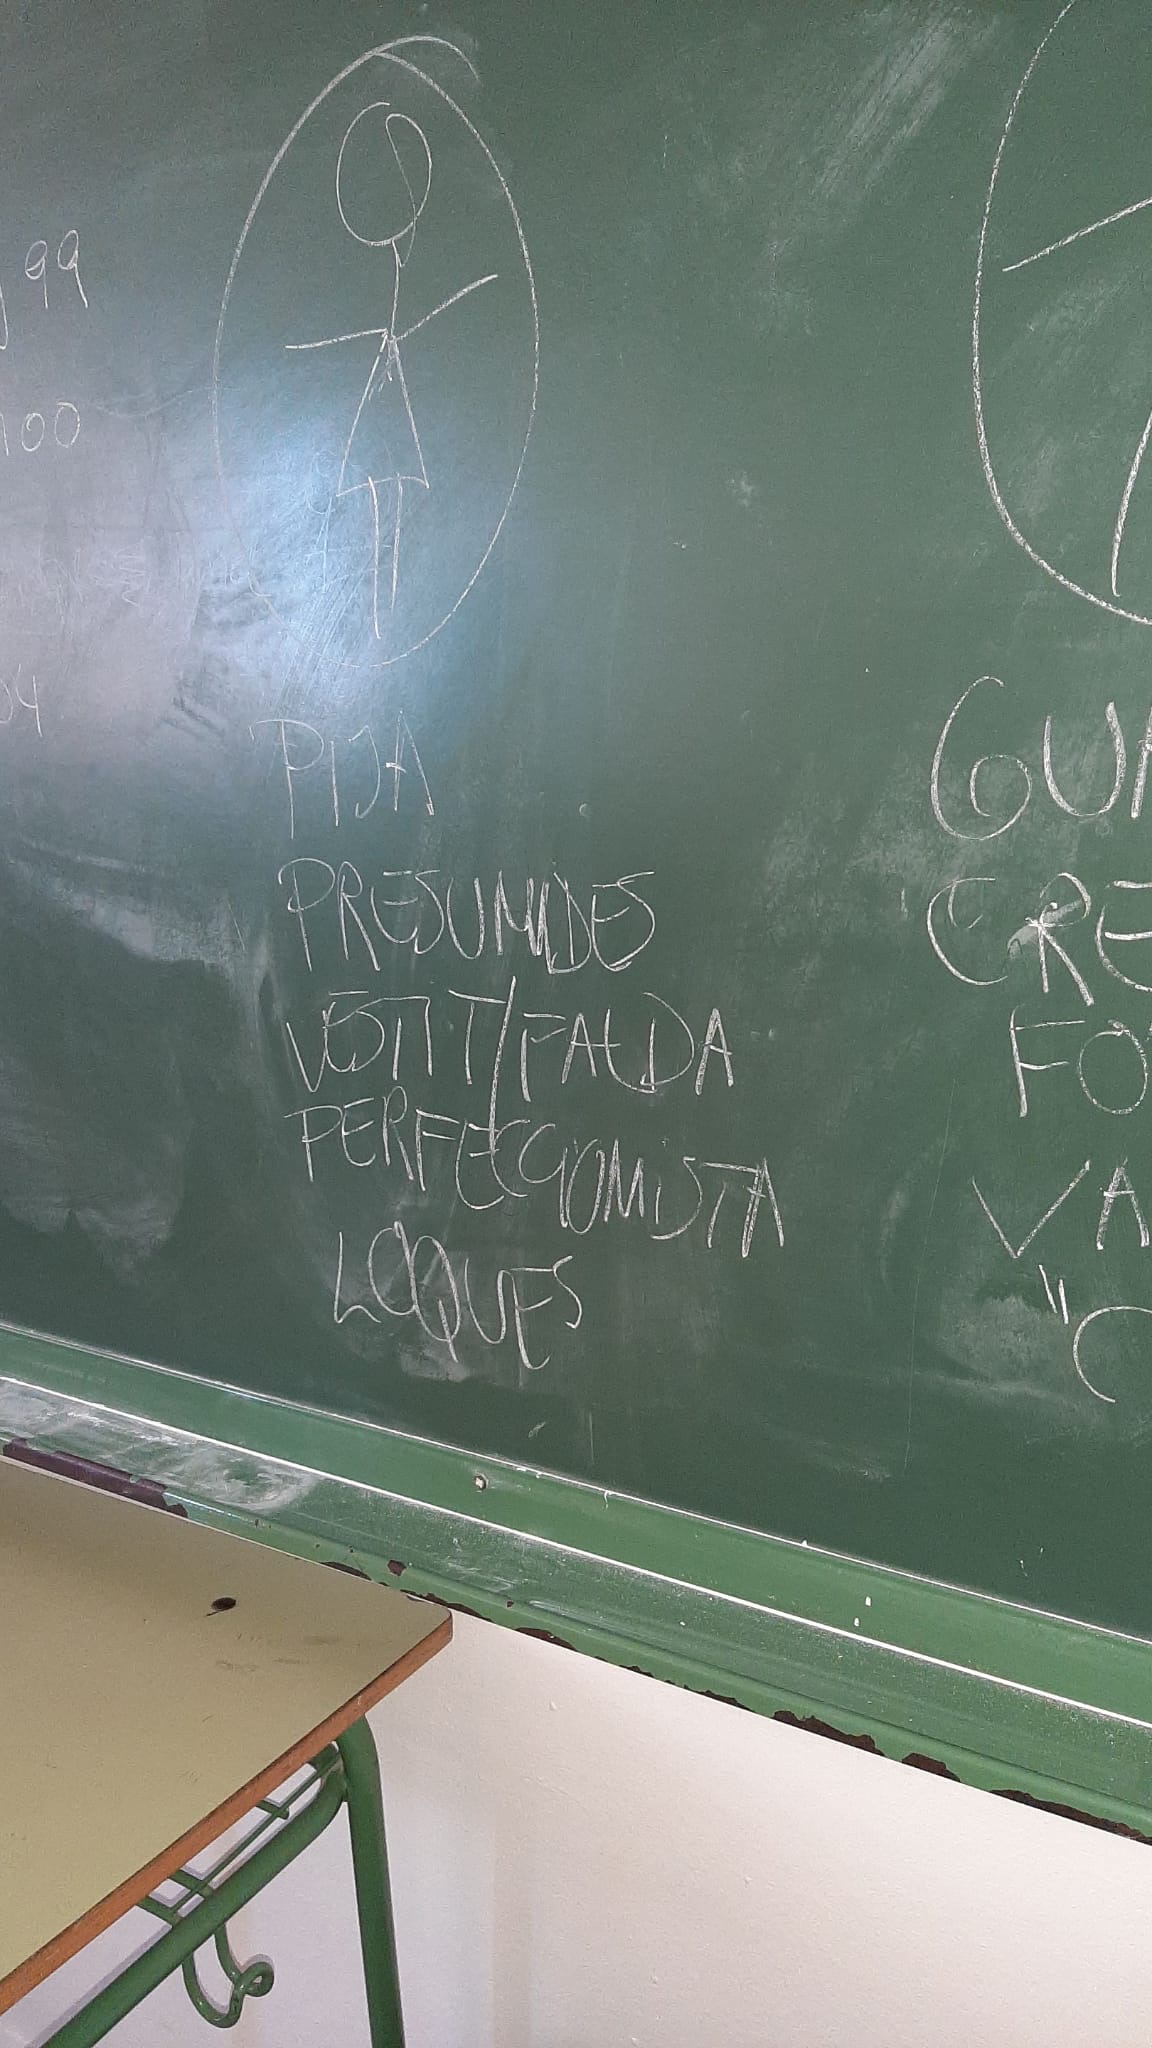 99
100
04
PIJA
PRESUMIDES
VESTIT/FALDA
PERFECCIONISTA
LOQUES
GUA
CRE
FO
VA
"C